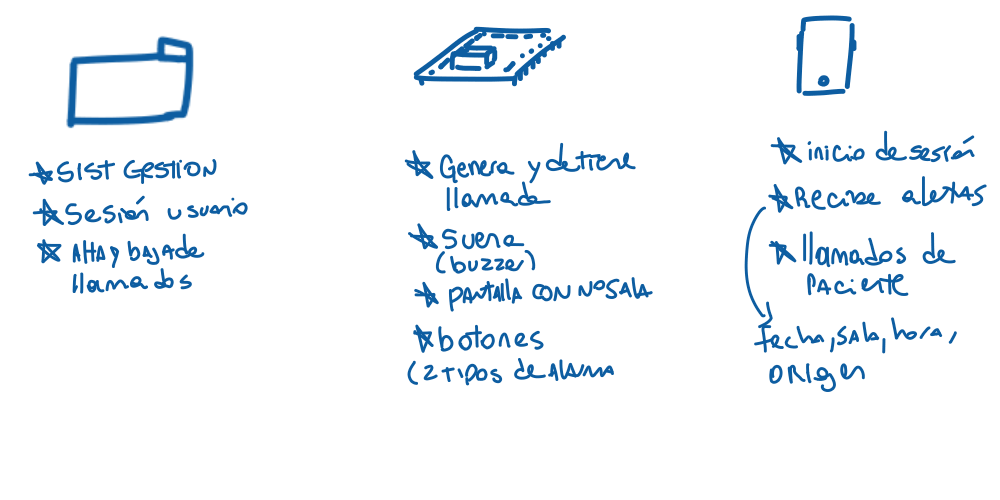 SIST GESTION
Sesión usuario
Alta y baja de
llamados
Genera y detiene
llamada
Suena
(buzzer)
PANTALLA CON Nº SALA
botones
(2 tipos de Alarma
inicio de sesión
Recibe alertas
llamados de
paciente
fecha, sala, hora,
origen